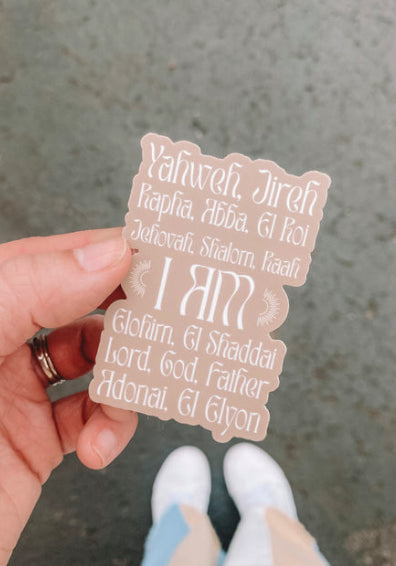 Yahweh, Jireh
Rapha, Abba, El Roi
Jehovah, Shalom, Raah
I AM
Elohim, El Shaddai
Lord, God, Father
Adonai, El Elyon